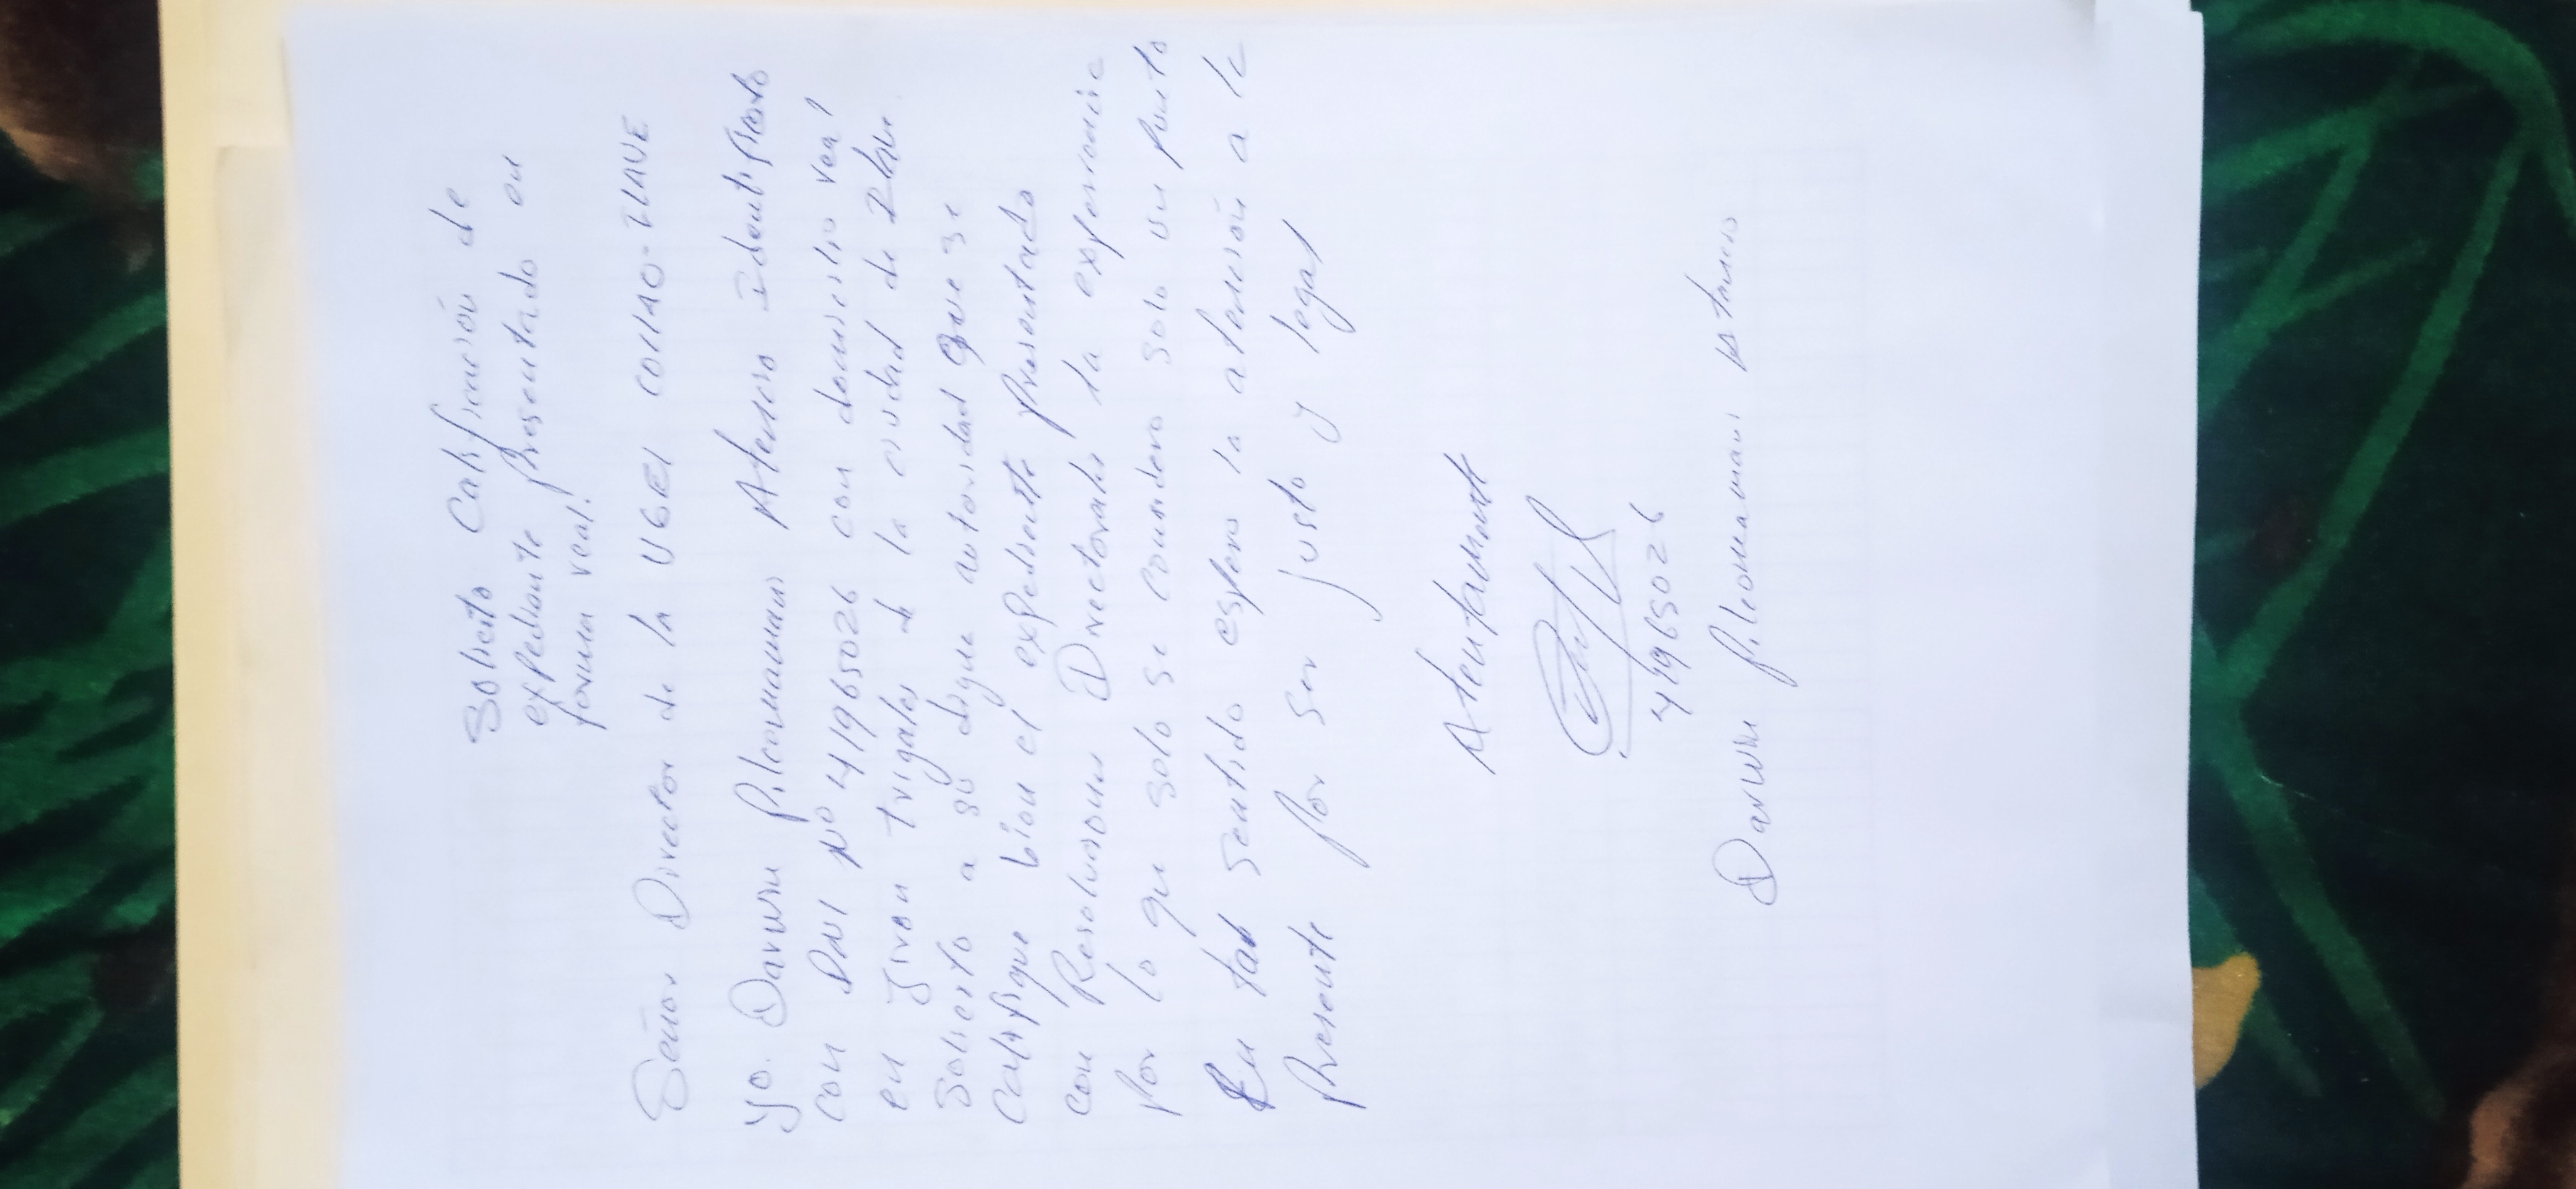 Solicito Calificación de
expediente presentado en
forma real.
Señor Director de la UGEL COLLAO-ILAVE
Yo. Darwin Pilcomamani Atencio Identificado
con DNI Nº 41965026 con domicilio real
en Jiron trigales de la ciudad de Ilave
Solicito a su digna autoridad que se
Califique bien el expediente presentado
con Resoluciones Directorales la experiencia
por lo que solo se considero solo un punto
En tal sentido espero la atención a la
Presente por ser justo y legal
Atentamente
41965026
Darwin Pilcomamani Atencio